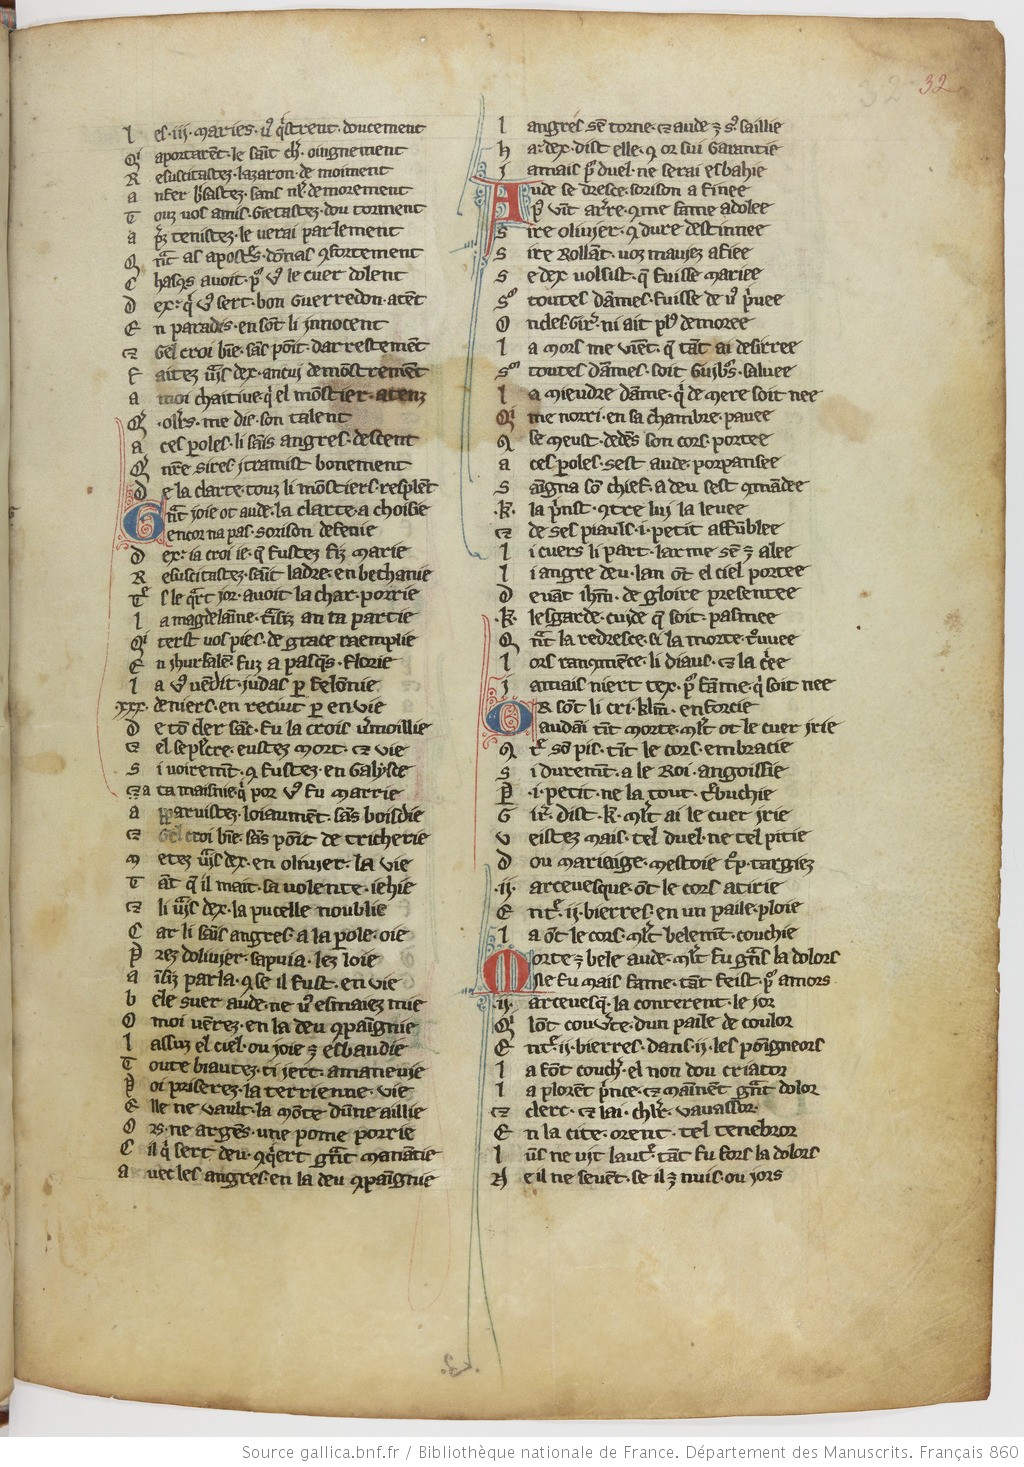 32
l es .iij. maries. uꝰ q̄istrent. doucement
Qi aportarēt. le sāīt ch̄r. oingnement
R esuscitastez. lazaron. de moiment
a nfer bͥsastez. sans nͥl demorement
T ouz uos amis. Gietastez. dou torment
a pͬz tenistez. le verai parlement
chascꝰ auoit. pͦ vꝰ le cuer dolent
D ex. qͥ vꝰ sert. bon Guerredon. atēt
E n paradis. en sōt li innocent
⁊ Gel croi bn̄e. sās poīt. darrestemēt
F aitez
a moi chaitiue. qͥ el mōstier. atenz
me die. son talent
a ces ꝑoles. li sāīs angres. descent
nr̄e sires. i tramist bonement
d e la clarte. touz li mōstiers. resplēt
G nᵃt joie ot aude. la clarte. a choisie
encor na pas. sorison. defenie
D ex. ia croi ie. qͤ fustez. fiz marie
R esuscitastez. saīt ladre. en bechanie
s le qᵃrt jor. auoit la char. porrie
l a magdelaīne. an ta partie
Qi terst uos pies. de grace raemplie
E n jhursalē. fuz a pasqꝭ. florie
l a vꝰ uēdit. judas ꝑ felōnie
.xxx. deniers. en reciut ꝑ enuie
D e tō cler sāc. fu la crois vͬmoillie
⁊ el seplͨre. eustez mort. ⁊ vie
S i uoiremēt. ꝯ fustez. en Galylee
⁊ a ta maisnie. qͥ por vꝰ fu marrie
a pparuistez. loiaumēt. sās boisdie
⁊ Gel croi bn̄e. sās poīt de tricherie
M etez en oliuier. la vie
T āt qͤ il mait. sa volente. iehie
⁊ li dex. la pucelle noublie
C ar li sāīs angres. a la ꝑole. oie
P rez doliuier. sapuia. lez loie
a īsi parla. ꝯ se il fust. en vie
b ele suer aude. ne vꝰ esmaiez mie
O moi uēres. en la deu ꝯpaīgnie
l assuz el ciel. ou joie ⁊ esbaudie
T oute biautez. ti jert. amaneuie
P oi priserez. la terrienne. vie
E lle ne vault. la mōte dūne aillie
O rs. ne argēs. une pome porrie
C il qͥ sert deu. ꝯqͥert gᵃnt manātie
a uec les angres. en la deu ꝯpaīgnie
l angres sē torne. ⁊ aude ⁊ sꝰ saillie
h a. dex. dist elle. ꝯ or sui Garantie
j amais pͦ duel. ne serai esbahie
A ude se dresce. sorison a finee
pͦ vīt arͬre. ꝯme fame adolee
S ire oliuier. ꝯ dure destinnee
S ire Rollāt. uoz mauiez afiee
S e dex volsist. qͤ fuisse mariee
Sͦ toutes dāmes. fuisse de uꝰ pͥuee
O ncles Girͬ. ni ait plꝰ demoree
l a mors me uiēt. qͤ tāt ai desirree
Sͦ toutes dāmes. soit saluee
l a mieudre dāme. qͥ de mere soit nee
Qi me norri. en sa chambre. pauee
Q se meust. dedēs son cors. portee
a ces ꝑoles. sest aude. porpansee
S aīgna sō chief. a deu sest ꝯmādee
.k. la pͥnst. ꝯtre lui la leuee
⁊ de ses piauls. i. petit affublee
l i cuers li part. larme sē ⁊ alee
l i angre deu. lan ōt el ciel portee
D euāt ihm̄. de gloire presentee
.k. lesgarde. cuide qͤ soit. pasmee
Q nᵃt la redresce. si la morte trouuee
l ors ranꝯmēce. li diaus. ⁊ la cͥee
j amais niert tex. pͦ fāme. qͥ soit nee
O r sōt li cri. enforcie
audaī tīt morte. ml̄t ot le cuer jrie
sō pis. tīt le cors. embracie
S i durement. a le Roi. angoissie
P .i. petit. ne la tout. trebuchie
G irͬ. dist .k. ml̄t ai le cuer jrie
v eistez mais. tel duel. ne tel pitie
D ou mariaige. mestoie tͦp. targiez
.ij. arceuesque. ōt le cors atirie
E ntͤ .ij. bierres. en un paile. ploie
l a ōt le cors. ml̄t belemēt. couchie
M orte ⁊ bele aude. ml̄t fu gᵃns la dolors
Ne fu mais fame. tāt feist. pͦ amors
.ij. arceuesqͤ. la conreerent. le jor
Qi lōt couͬte. dun paile de coulor
E ntͤ .ij. bierres. dans .ij. les poīgneors
l a fōt couchͬ. el non dou criator
l a plorēt pͥnce. ⁊ maīnēt gᵃnt dolor
⁊ clerc. ⁊ lai. chl̄r. vauassor.
E n la cite. orent. tel tenebror
l ūs ne uit lautͤ. tāt fu fors la dolors
N e il ne seuēt. se il ⁊ nuis. ou jors
Source gallica.bnf.fr / Bibliothèque nationale de France. Département des Manuscrits. Français 860